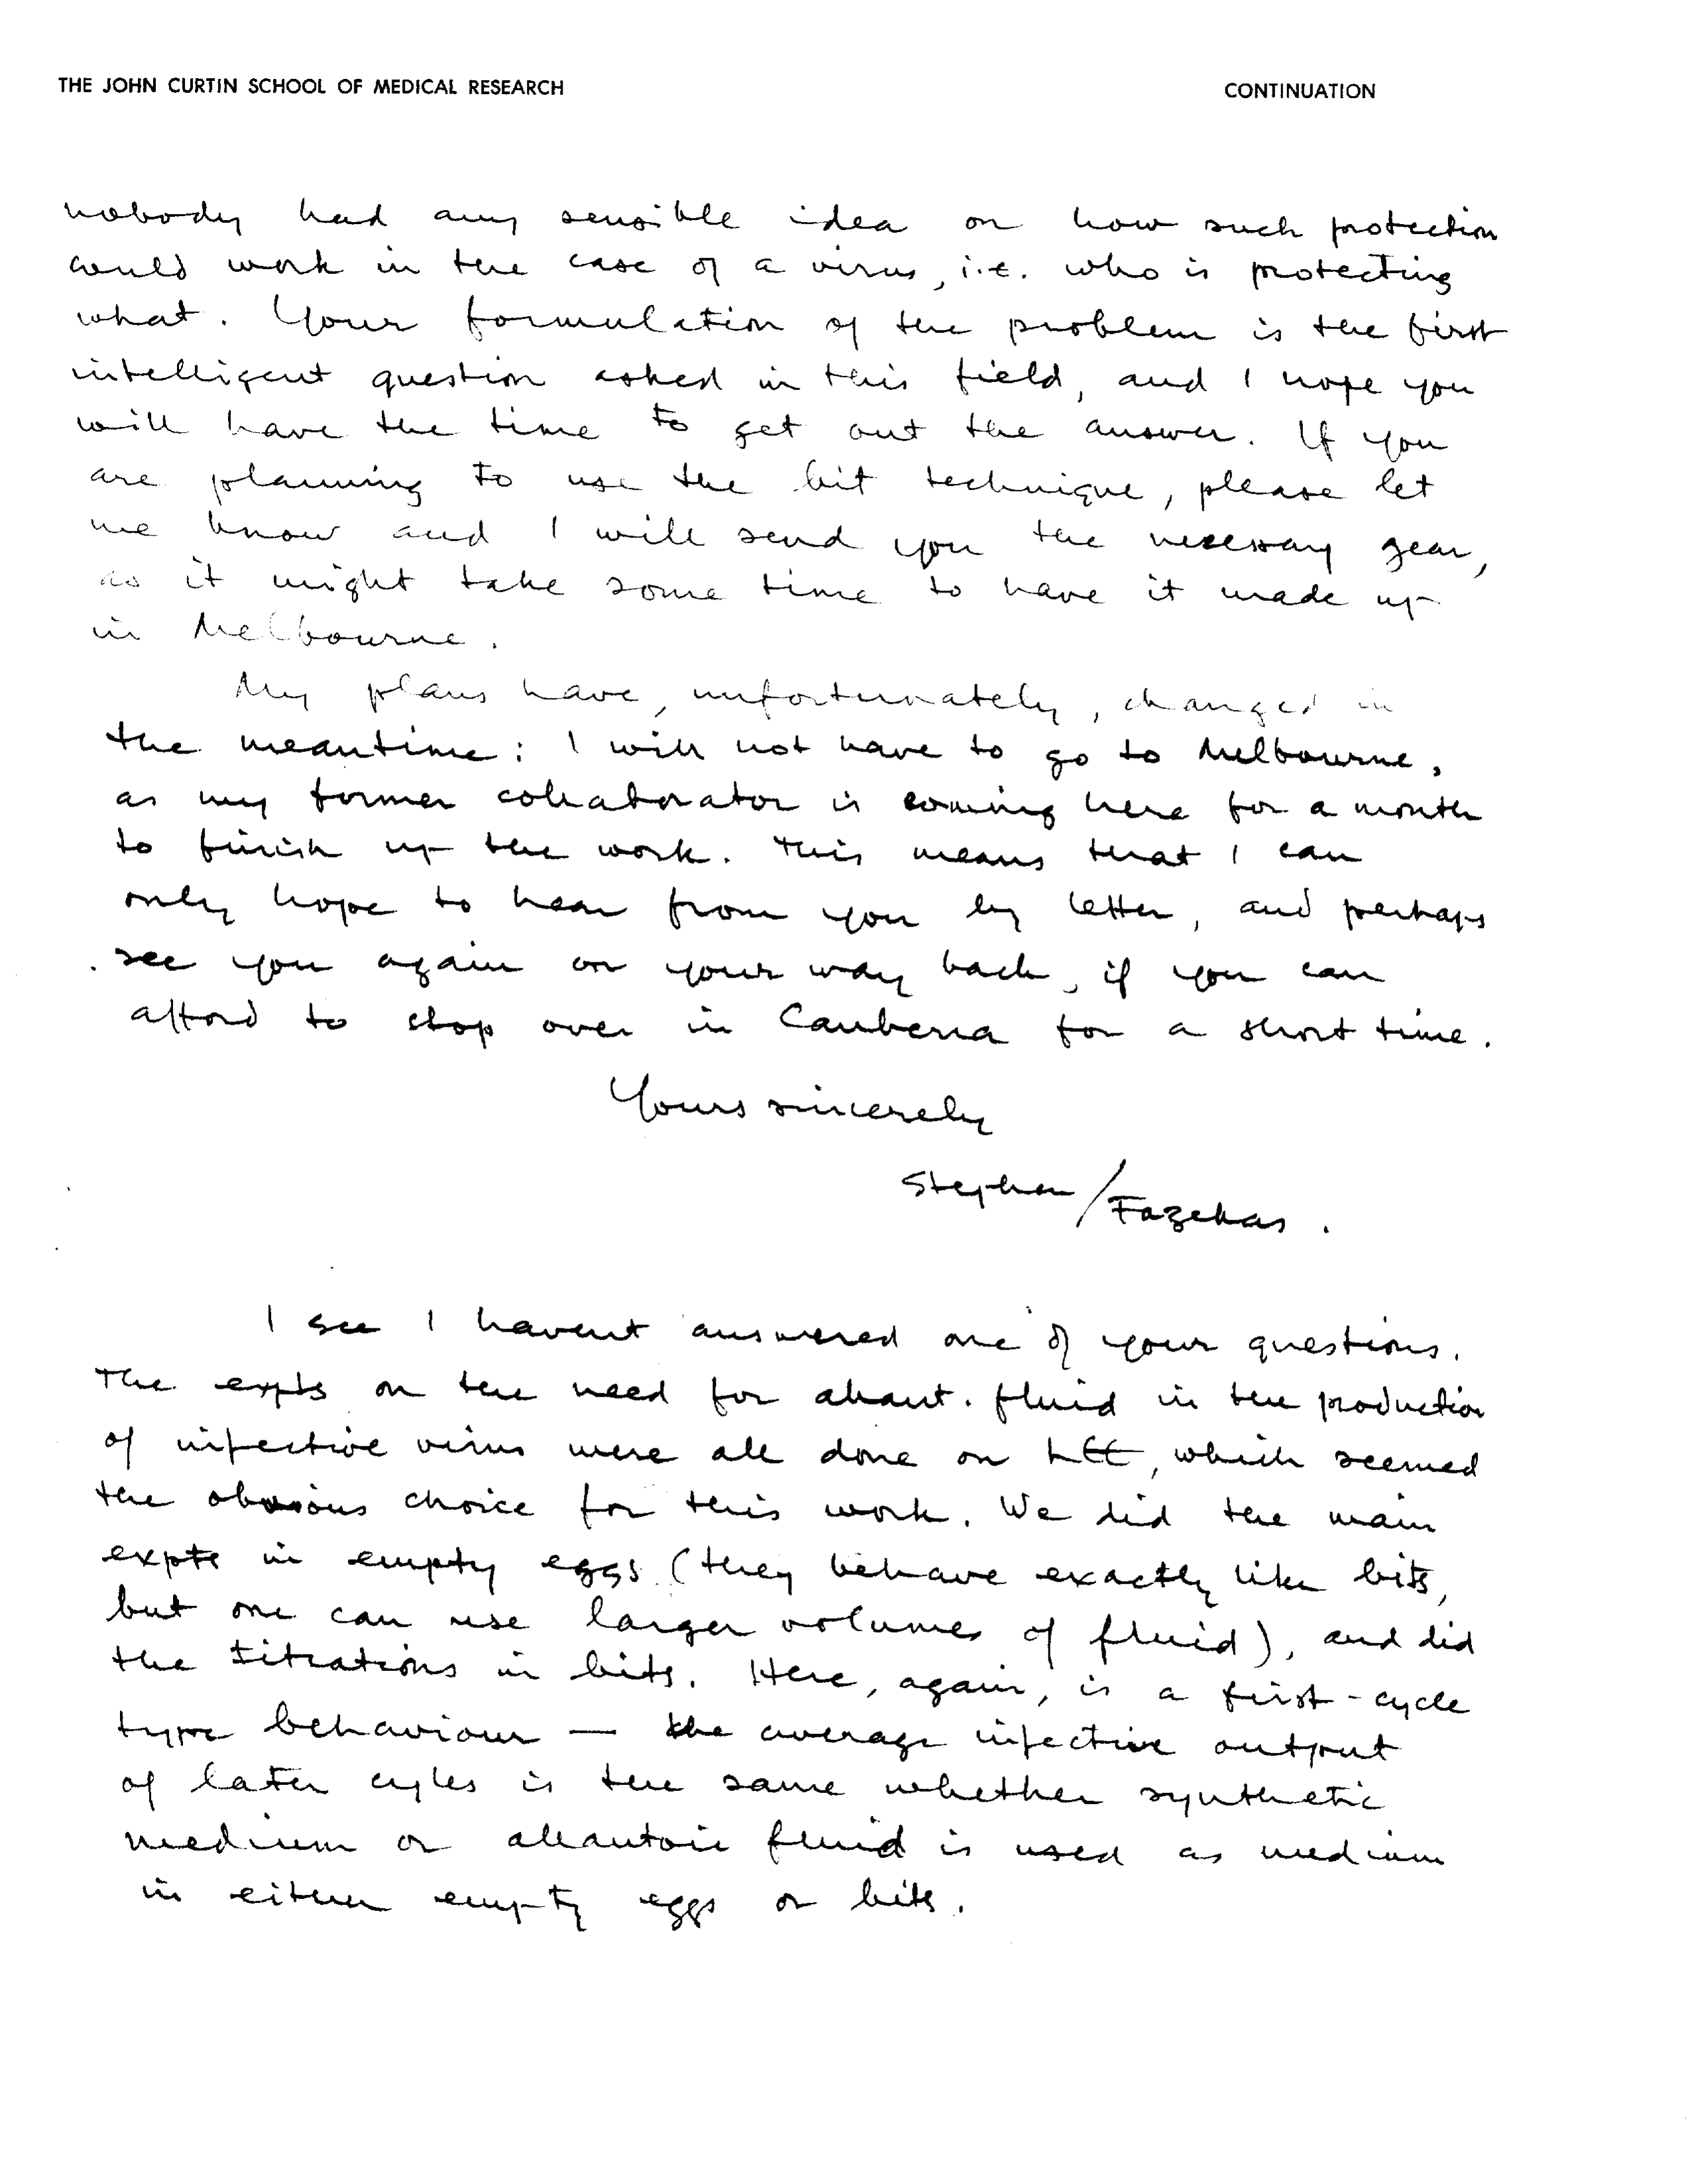 THE JOHN CURTIN SCHOOL OF MEDICAL RESEARCH CONTINUATION
nobody had any sensible idea on how such protection
would work in the case of a virus, i.e. who is protecting
what. Your formulation of the problem is the first
intelligent question asked in this field, and I hope you
will have the time to get out the answer. If you
are planning to use the bit technique, please let
me know and I will send you the necessary gear,
as it might take some time to have it made up
in Melbourne.
My plans have, unfortunately, changed in
the meantime: I will not have to go to Melbourne,
as my former collaborator is coming here for a month
to finish up the work. This means that I can
only hope to hear from you by letter, and perhaps
see you again on your way back, if you can
afford to stop over in Canberra for a short time.
Yours sincerely
Stephen/Fazekas.
I see I havent answered one of your questions.
The expts on the need for allant. fluid in the production
of infective virus were all done on LEE, which seemed
the obvious choice for this work. We did the main
expts in empty eggs (they behave exactly like bits,
but one can use larger volumes of fluid), and did
the titrations in bits. Here, again, is a first-cycle
type behaviour — the average infective output
of later cycles is the same whether synthetic
medium or allantoic fluid is used as medium
in either empty eggs or bits.